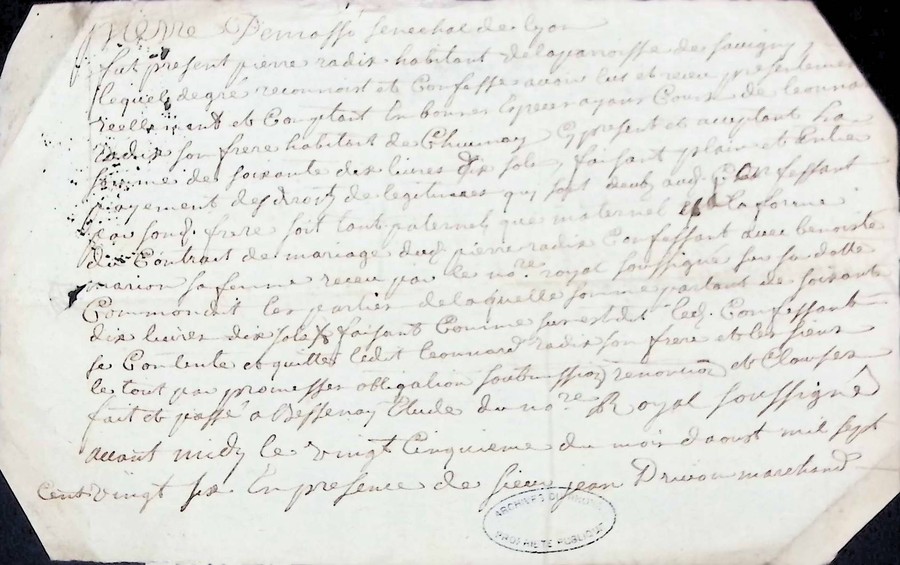 pierre Demassô senechal de Lyon
fut present pierre radix habitant de la parroisse de Savigny
lequel de gré reconnoist et Confesse avoir eus et receu presentement
reellement et Comptant En bonnes Especes ayans Cours de leonnard
radix son frere habitant de Chevinay Cy present et acceptant la
somme de soixante dix livres dix sols faisant plain et Entier
payement des droits de legitimes quy sont deubs aud. Confessant
par sond. frere soit tant paternels que maternels a la forme
du Contrait de mariage dud. pierre radix Confessant avec benoiste
marion sa femme receu par le nore. royal soussigné
Comme ont les parties de laquelle somme partant de soixante
dix livres dix sols faisant Comme sus est dit led. Confessant
se Contente et quitte led. leonnard radix son frere et les siens
le tout par promesses obligation soubmission renontion et Clauses
fait et passé a Bessenay Etude du nore. Royal soussigné
avant midy le vingt Cinquieme du mois daoust mil sept
Cent vingt six En presence de sieur jean Drivon marchand
ARCHIVES DU RHONE
PROPRIETE PUBLIQUE